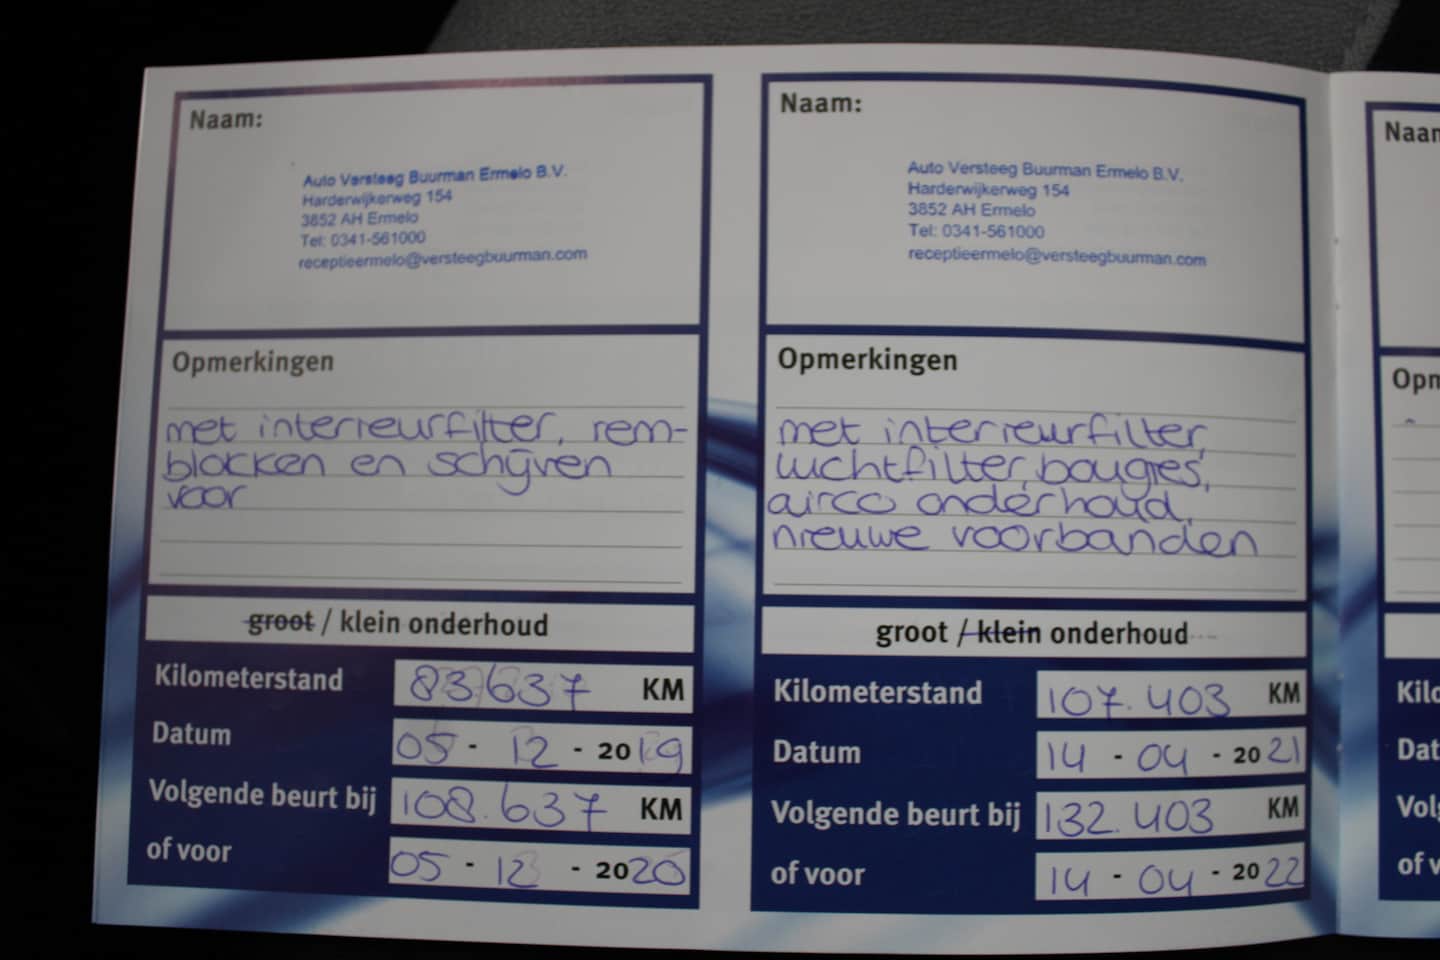 Naam:
Auto Versteeg Buurman Ermelo B.V.
Harderwijkerweg 154
3852 AH Ermelo
Tel: 0341-561000
receptieermelo@versteegbuurman.com
Opmerkingen
met interieurfilter, rem-
blokken en schijven
voor
groot / klein onderhoud
Kilometerstand 83.637 KM
Datum 05 - 12 - 2019
Volgende beurt bij 108.637 KM
of voor 05 - 12 - 2020
Naam:
Auto Versteeg Buurman Ermelo B.V.
Harderwijkerweg 154
3852 AH Ermelo
Tel: 0341-561000
receptieermelo@versteegbuurman.com
Opmerkingen
met interieurfilter,
luchtfilter, bougies,
airco onderhoud,
nieuwe voorbanden
groot / klein onderhoud
Kilometerstand 107.403 KM
Datum 14 - 04 - 2021
Volgende beurt bij 132.403 KM
of voor 14 - 04 - 2022
Naam
Opm
Kilo
Dat
Volg
of v